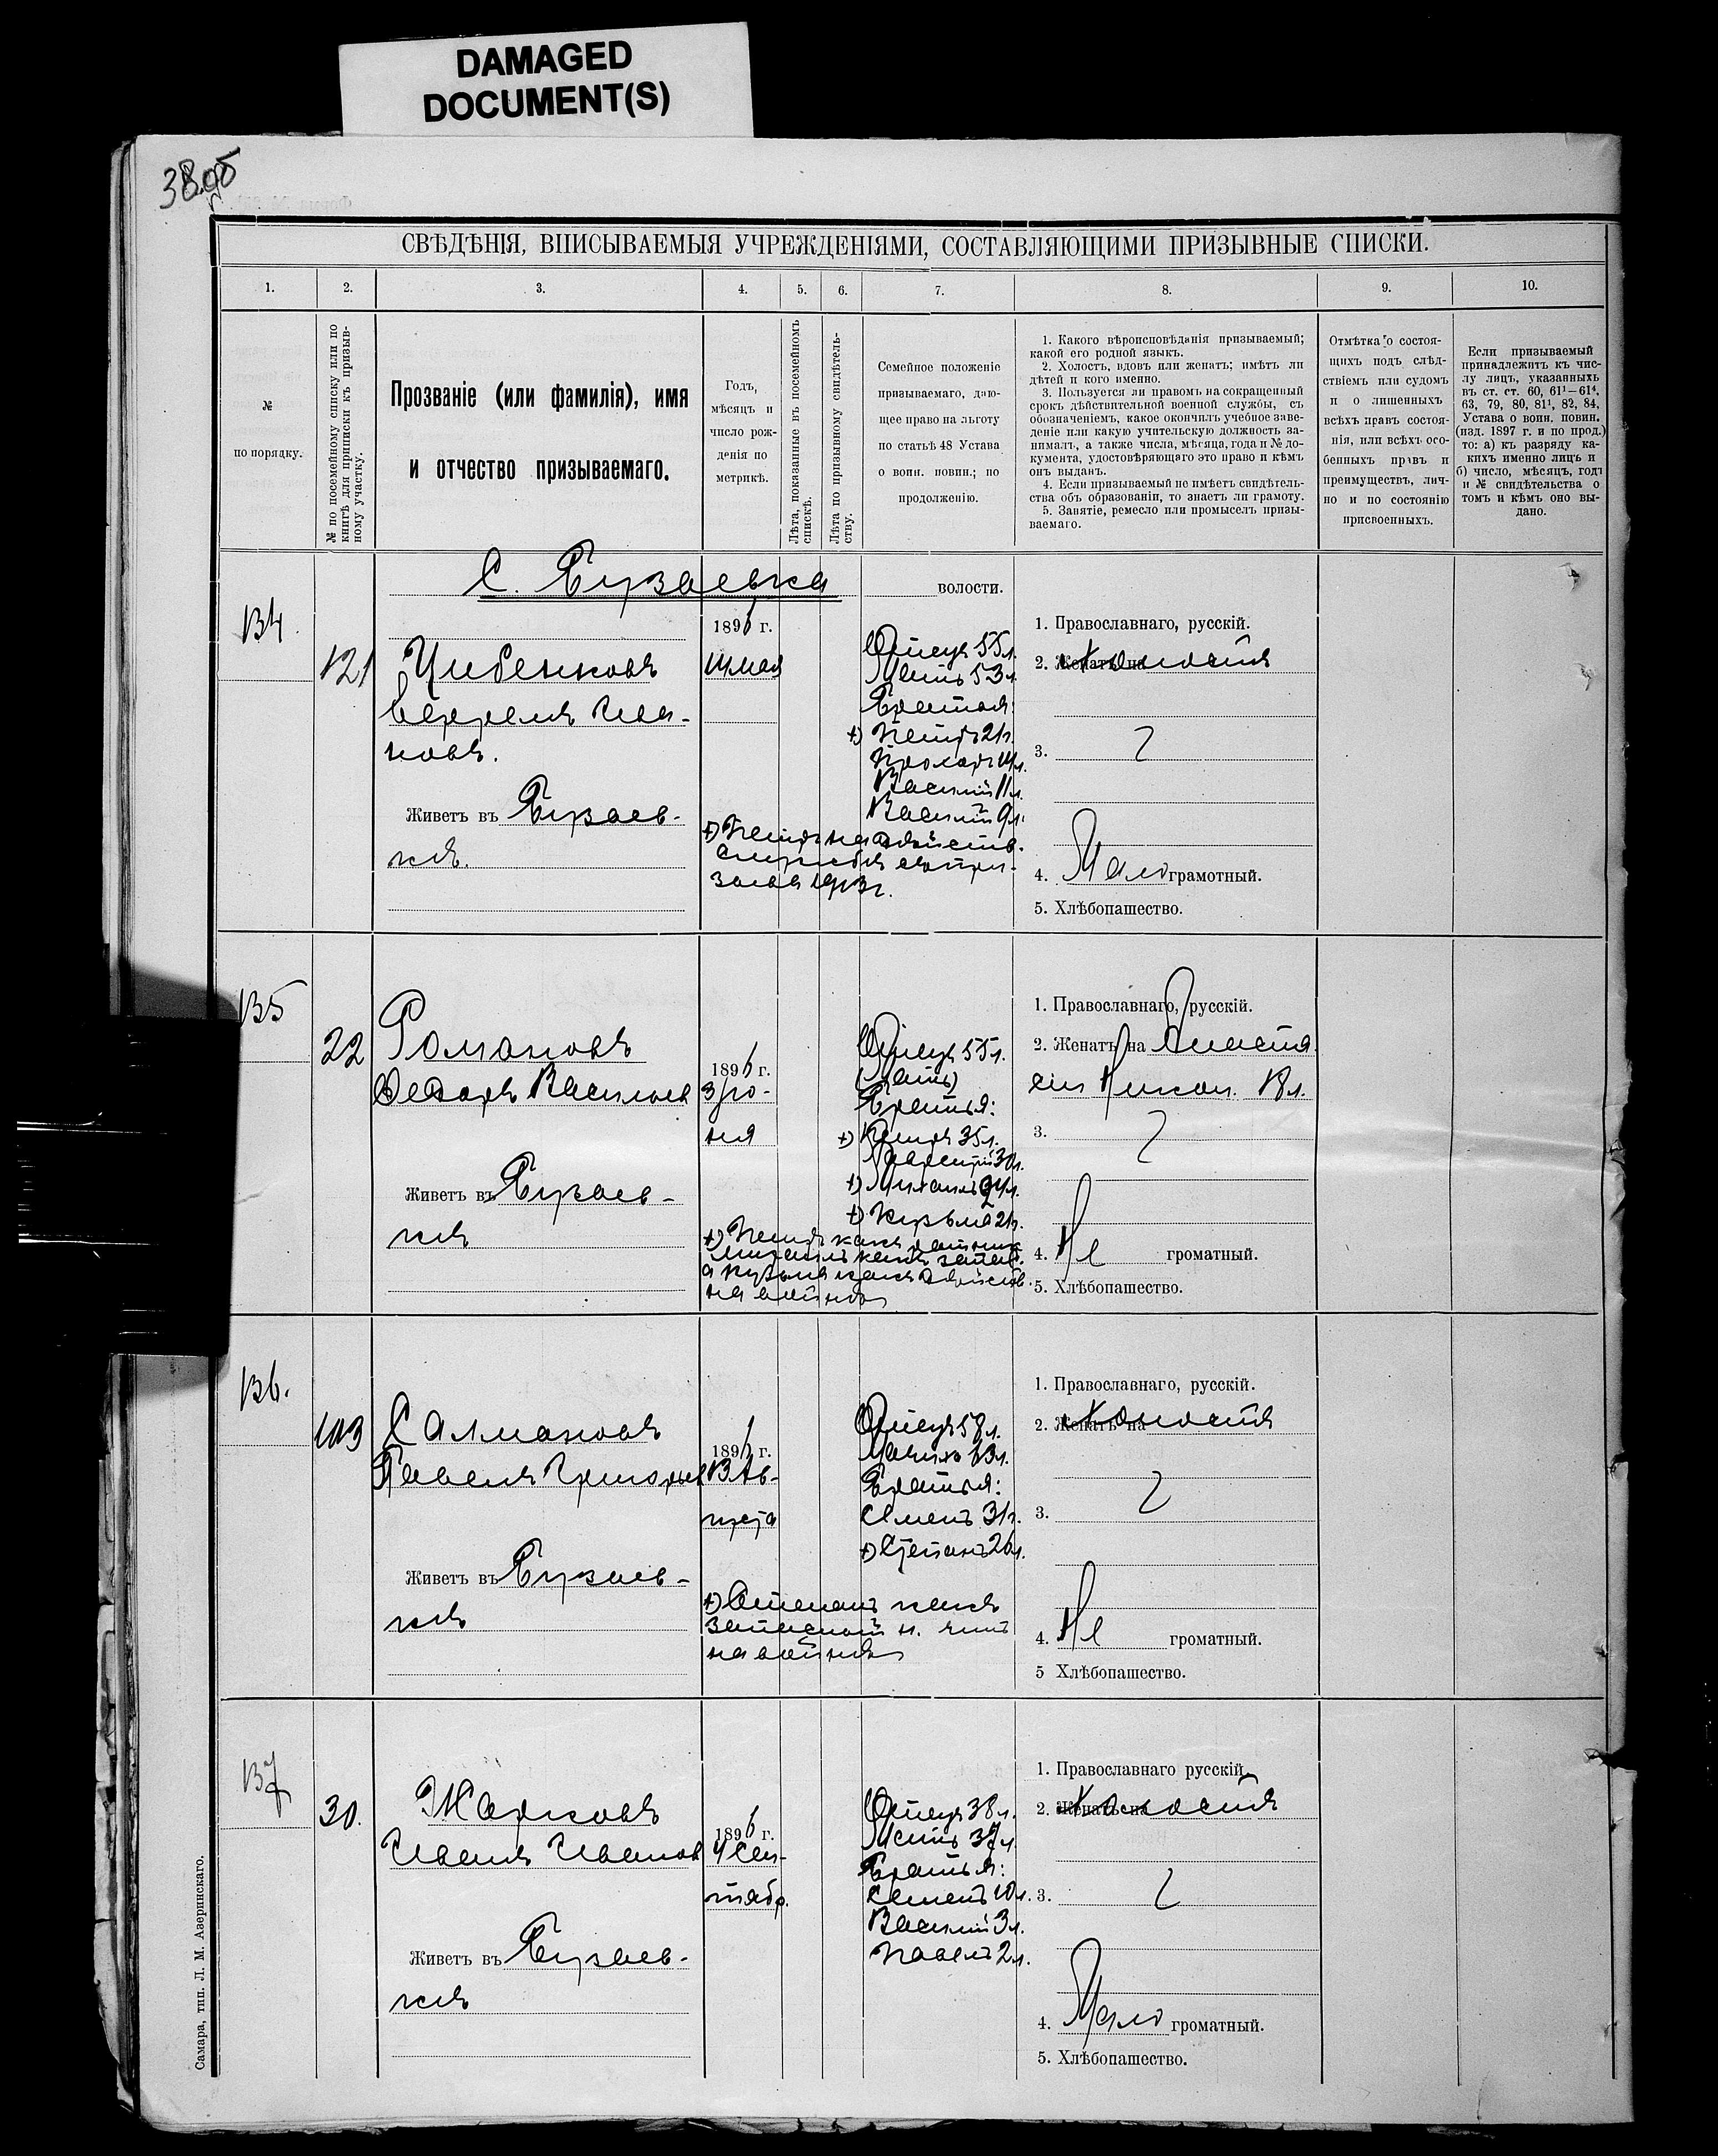 DAMAGED
DOCUMENT(S)
38 об
СВѢДѢНІЯ, ВПИСЫВАЕМЫЯ УЧРЕЖДЕНІЯМИ, СОСТАВЛЯЮЩИМИ ПРИЗЫВНЫЕ СПИСКИ.
1. 2. 3. 4. 5. 6. 7. 8. 9. 10.
№
по порядку.
№ по посемейному списку или по
книгѣ для приписки къ призыв-
ному участку.
Прозваніе (или фамилія), имя
и отчество призываемаго.
Годъ,
мѣсяцъ и
число рож-
денія по
метрикѣ.
Лѣта, показанные въ посемейномъ
спискѣ.
Лѣта по призывному свидѣтель-
ству.
Семейное положеніе
призываемаго, даю-
щее право на льготу
по статьѣ 48 Устава
о воин. повин.; по
продолженію.
1. Какого вѣроисповѣданія призываемый;
какой его родной языкъ.
2. Холостъ, вдовъ или женатъ; имѣтъ ли
дѣтей и кого именно.
3. Пользуется ли правомъ на сокращенный
срокъ дѣйствительной военной службы, съ
обозначеніемъ, какое окончилъ учебное заве-
деніе или какую учительскую должность за-
нималъ, а также числа, мѣсяца, года и № до-
кумента, удостовѣряющаго это право и кѣмъ
онъ выданъ.
4. Если призываемый не имѣетъ свидѣтель-
ства объ образованіи, то знаетъ ли грамоту.
5. Занятіе, ремесло или промыселъ призы-
ваемаго.
Отмѣтка о состоя-
щихъ подъ слѣд-
ствіемъ или судомъ
и о лишенныхъ
всѣхъ правъ состоя-
нія, или всѣхъ осо-
бенныхъ правъ и
преимуществъ, лич-
но и по состоянію
присвоенныхъ.
Если призываемый
принадлежитъ къ чис-
лу лицъ, указанныхъ
въ ст. ст. 60, 61¹—61⁴,
63, 79, 80, 81¹, 82, 84,
Устава о воин. повин.
(изд. 1897 г. и по прод.)
то: а) къ разряду ка-
кихъ именно лицъ и
б) число, мѣсяцъ, годъ
и № свидѣтельства о
томъ и кѣмъ оно вы-
дано.
С. Бузаевка волости.
134.
121
Чибенковъ
Ива-
новъ.
Живетъ въ Бузаев-
кѣ.
1896 г.
14 мая
Отецъ 55 л.
Мать 53 л.
Братья:
+) Петръ 21 г.
Прохоръ 14 л.
Василій 11 л.
Василій 9 л.
+) Петръ на дѣйств.
службѣ съ при-
зыва 1913 г.
1. Православнаго, русскій.
2. Женатъ на Холостъ
3.
4. Мало грамотный.
5. Хлѣбопашество.
135
22
Романовъ
Ѳедоръ Васильев
Живетъ въ Бузаев-
кѣ
1896 г.
3 Iю-
ня
Отецъ 55 л.
(мать)
Братья:
+) Петръ 35 л.
Лаврентій 30 л.
+) Михаилъ 24 л.
+) Кузьма 21 г.
+) Петръ какъ ратник
Михаилъ какъ запас.
а Кузьма какъ дѣйств.
на войнѣ
1. Православнаго, русскій.
2. Женатъ на Анаста
сіи Никол. 18 л.
3.
4. Не громатный.
5. Хлѣбопашество.
136.
103
Салмановъ
Павелъ Григорьев
Живетъ въ Бузаев-
кѣ
1896 г.
13 Ав-
густа
Отецъ 58 л.
Мачих 53 л.
Братья:
Семенъ 31 г.
+) Степанъ 26 л.
+) Степанъ какъ
запасной н. чинъ
на войнѣ
1. Православнаго, русскій.
2. Женатъ на Холостъ
3.
4. Не громатный.
5 Хлѣбопашество.
137
30.
Жарковъ
Иванъ Иванов
Живетъ въ Бузаев-
кѣ
1896 г.
4 Сен-
тябр.
Отецъ 38 л.
Мать 37 л.
Братья:
Семенъ 10 л.
Василій 3 л.
Павелъ 2 л.
1. Православнаго русскій.
2. Женатъ на Холостъ
3.
4. Мало громатный.
5. Хлѣбопашество.
Самара, тип. Л. М. Азеринскаго.